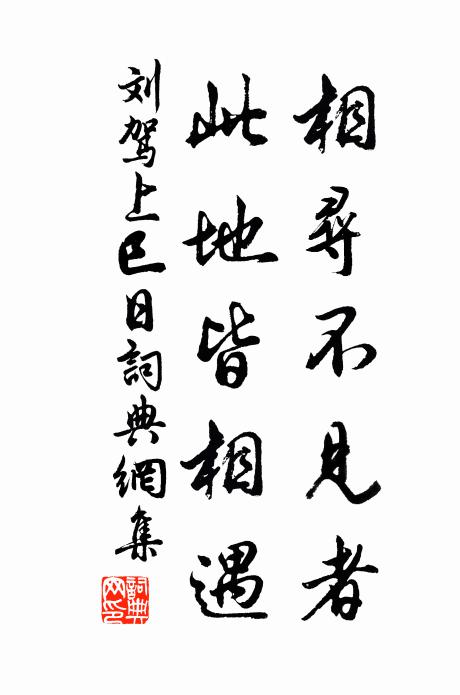 相尋不見者
此地皆相遇
刘駕上巳日詞典網集
詞典网印